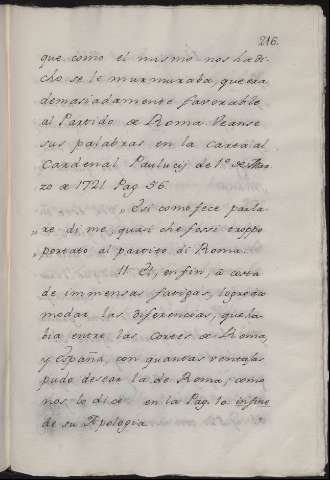 216.
que como el mismo nos ha di-
cho se le murmuraba, que era
demasiadamente favorable
al Partido de Roma. Veanse
sus palabras en la Carta al
Cardenal Paulucij de 1.º de Mar-
zo de 1721 Pag. 56.
„ Esi come fece parla-
„ re di me, quasi che fossi troppo
portato al partito di Roma.
11. El, en fin, à costa
de immensas fatigas, logrò aco-
modar las diferencias, que ha-
bia entre las cortes de Roma,
y España, con quantas ventajas
pudo desear la de Roma; como
nos lo dice en la Pag. 10 infine
de su Apologia.